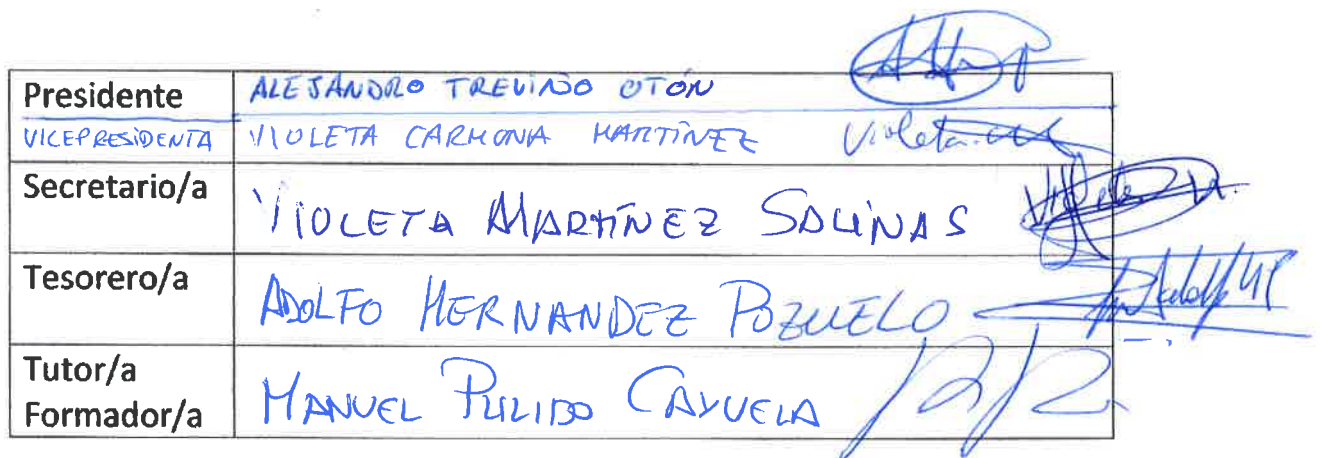 Presidente ALEJANDRO TREVIÑO OTÓN
VICEPRESIDENTA VIOLETA CARMONA MARTÍNEZ Violeta
Secretario/a VIOLETA MARTÍNEZ SALINAS
Tesorero/a ADOLFO HERNANDEZ POZUELO
Tutor/a
Formador/a MANUEL PULIDO CAYUELA